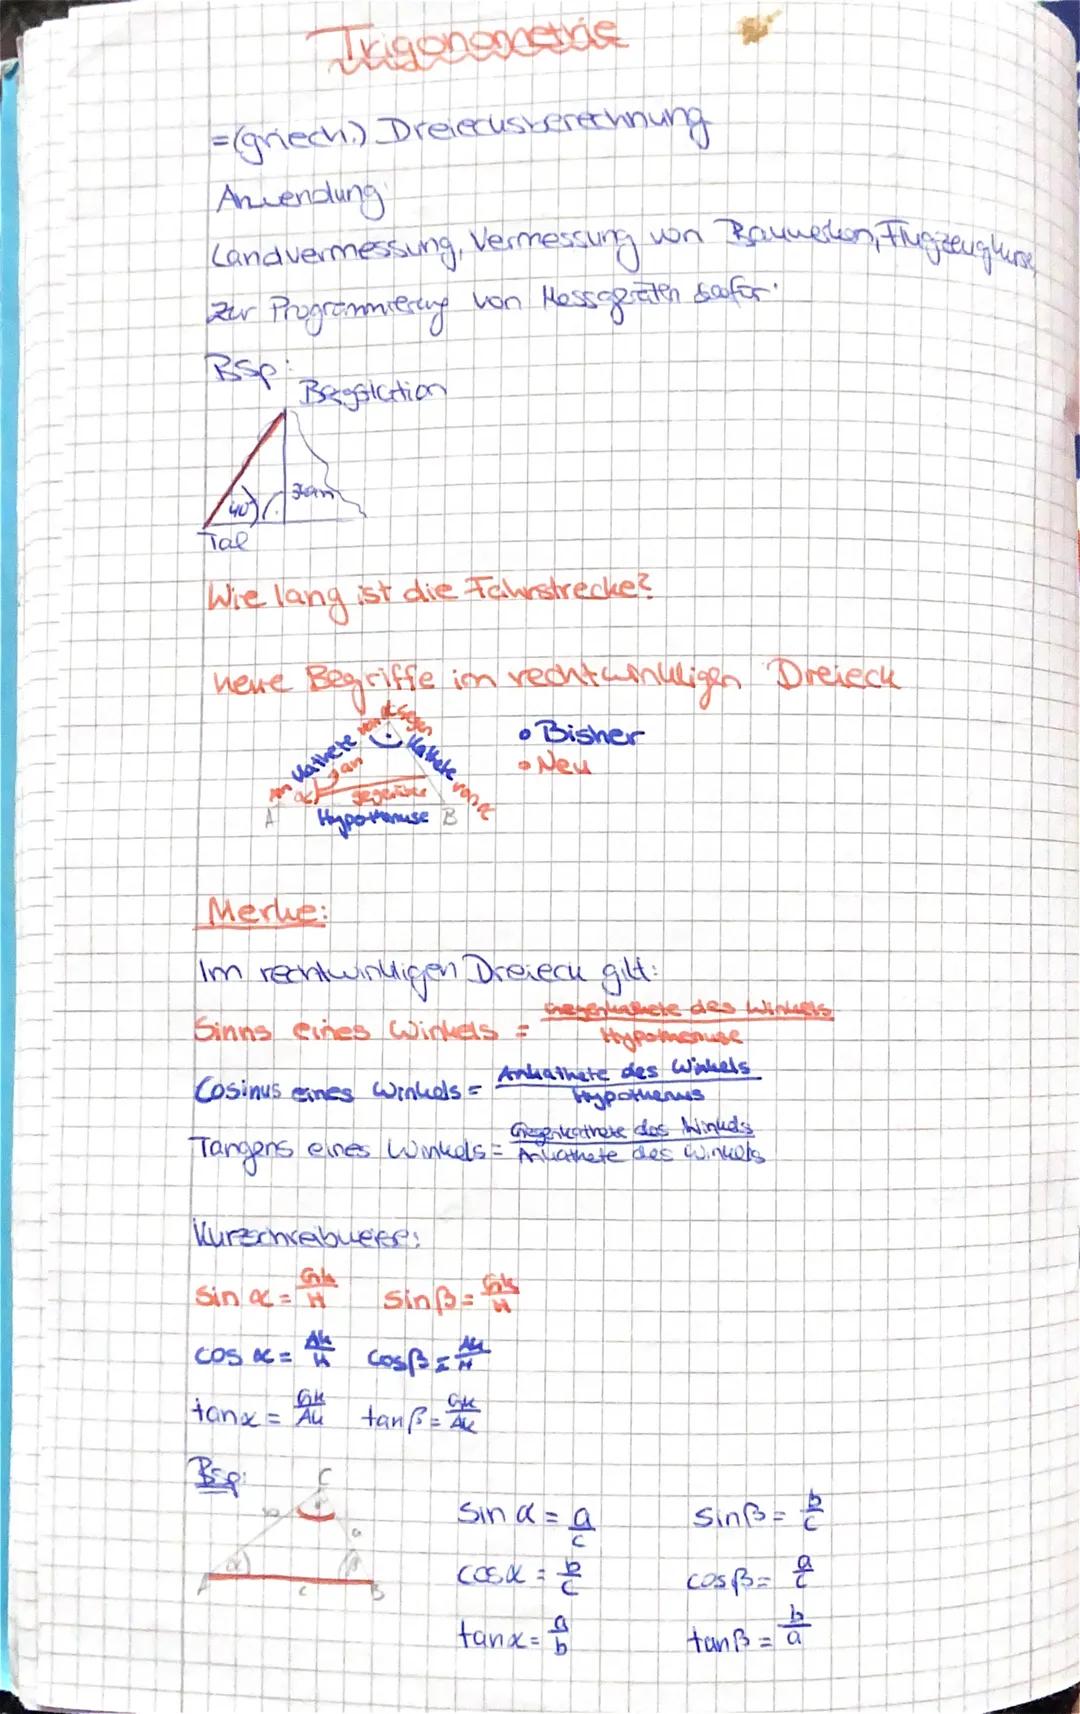 Trigonometrie
=(griech.) Dreiecksberechnung
Anwendung:
Landvermessung, Vermessung von Bauwerken, Flugzeugkurse,
zur Programmierung von Messgeräten
BSP:
Bergstation
40°
Tal
Wie lang ist die Fahrstrecke?
neue Begriffe im rechtwinkligen Dreieck
• Bisher
• Neu
An Kathete von α
Gegen Kathete von α
an
α
gegenüber
A
Hypotenuse
B
Merke:
Im rechtwinkligen Dreieck gilt:
Sinus eines Winkels = Gegenkathete des Winkels / Hypotenuse
Cosinus eines Winkels = Ankathete des Winkels / Hypothenus
Tangens eines Winkels = Gegenkathete des Winkels / Ankathete des Winkels
Kurzschreibweise:
sin α = Gk/H sin β = Gk/H
cos α = Ak/H cos β = Ak/H
tan α = Gk/Ak tan β = Gk/Ak
Bsp:
C
b
a
α
β
A
c
B
sin α = a/c sin β = b/c
cos α = b/c cos β = a/c
tan α = a/b tan β = b/a